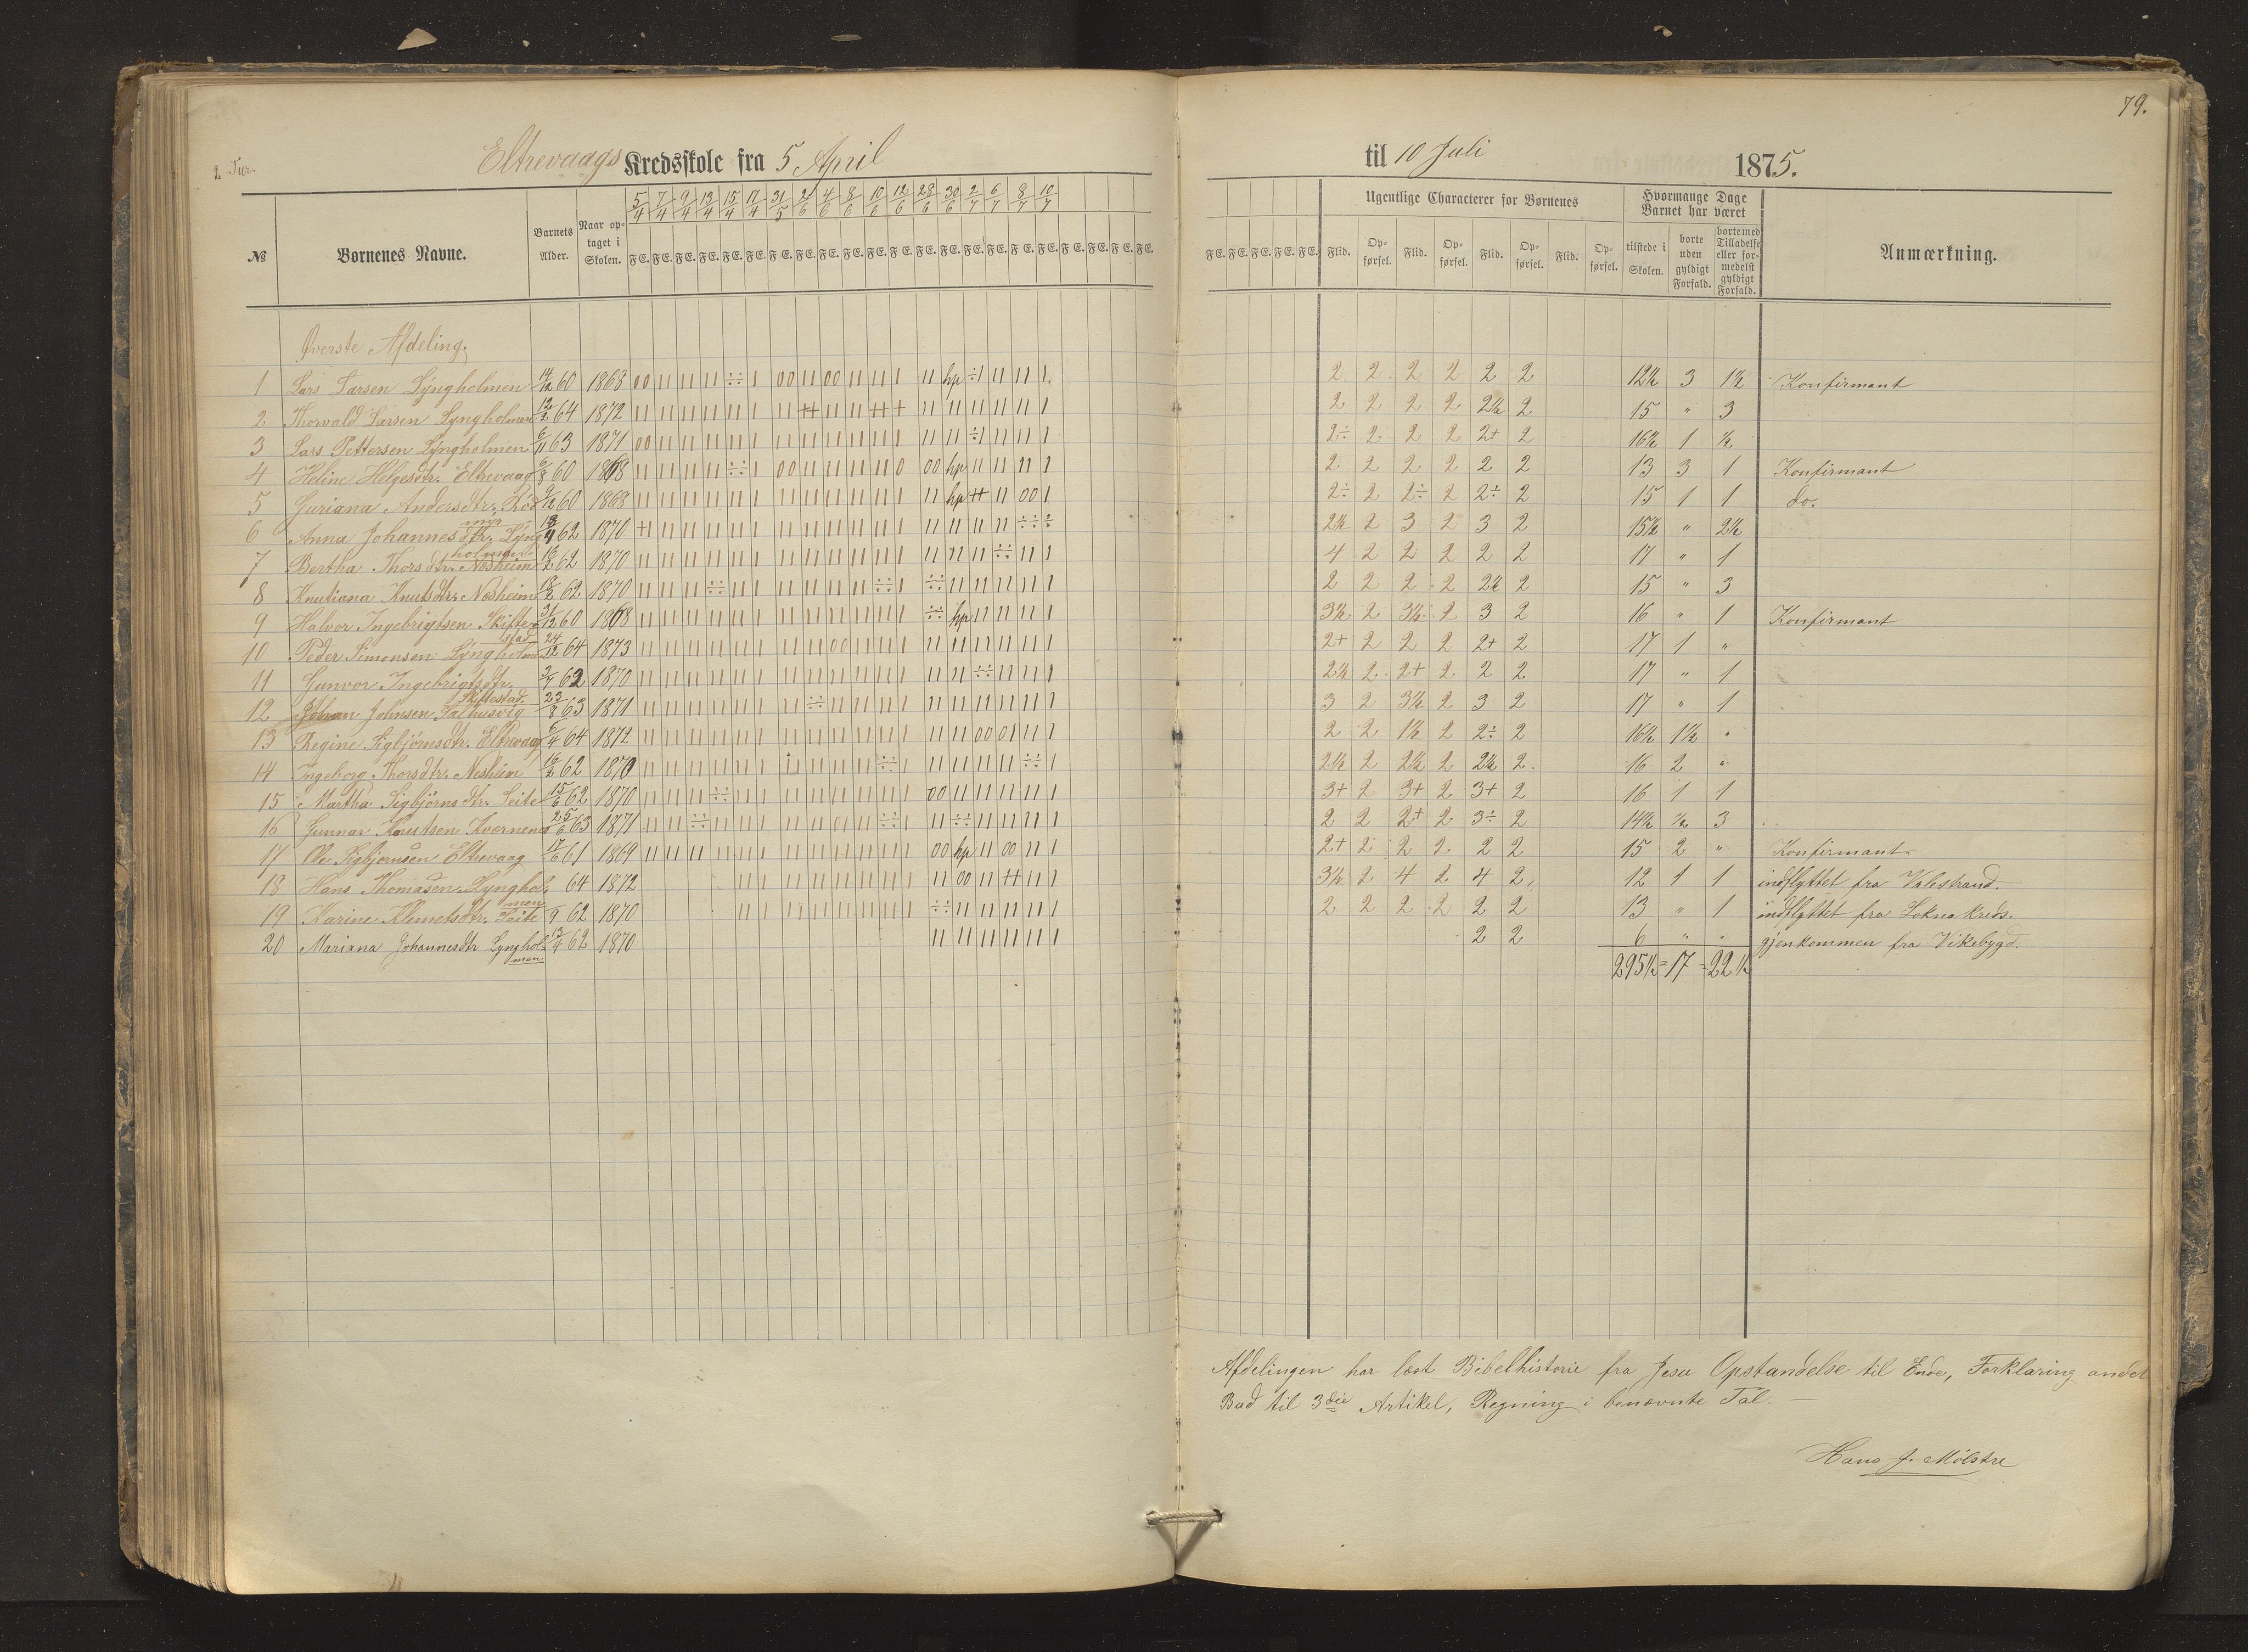 79.
2 Tur.
Eltrevaags Kredsskole fra 5 April til 10 Juli 1875.
№ Børnenes Navne. Barnets Alder. Naar optaget i Skolen. 5/4 7/4 9/4 13/4 15/4 17/4 31/5 2/6 4/6 8/6 10/6 12/6 28/6 30/6 2/7 6/7 8/7 10/7
F.E. F.E. F.E. F.E. F.E. F.E. F.E. F.E. F.E. F.E. F.E. F.E. F.E. F.E. F.E. F.E. F.E. F.E. F.E. F.E. F.E. F.E.
F.E. F.E. F.E. F.E. F.E. Ugentlige Characterer for Børnenes Flid. Opførsel. Flid. Opførsel. Flid. Opførsel. Flid. Opførsel.
Hvormange Dage Barnet har været tilstede i Skolen. borte uden gyldigt Forfald. borte med Tilladelse eller formedelst gyldigt Forfald. Anmærkning.
Øverste Afdeling.
1 Lars Larsen Lyngholmen 14/12 60 1868 2 2 2 2 2 2 12½ 3 1½ Konfirmant
2 Thorvald Larsen Lyngholmen 12/2 64 1872 2 2 2 2 2½ 2 15 " 3
3 Lars Pettersen Lyngholmen 6/11 63 1871 2÷ 2 2 2 2+ 2 16½ 1 ½
4 Heline Helgesdtr. Eltrevaag 6/8 60 1868 2 2 2 2 2 2 13 3 1 Konfirmant
5 Guriana Andersdtr. 9/12 60 1868 2÷ 2 2÷ 2 2÷ 2 15 1 1 do.
6 Anna Johannesdtr. Lyngholmen 62 1870 2½ 2 3 2 3 2 15½ " 2½
7 Bertha Thorsdtr. Nesheim 16/2 62 1870 4 2 2 2 2 2 17 " 1
8 Knutiana Knutsdtr. Nesheim 18/2 62 1870 2 2 2 2 2½ 2 15 " 3
9 Halvor Ingebrigtsen Skiftestad 31/12 60 1868 3½ 2 3½ 2 3 2 16 " 1 Konfirmant
10 Peder Simonsen Lyngholmen 24/12 64 1873 2+ 2 2 2 2+ 2 17 1 "
11 Gunvor Ingebrigtsdtr. Skiftestad. 62 1870 2½ 2 2+ 2 2 2 17 " 1
12 Johan Johnsen Salhusvig 23/8 63 1871 3 2 3½ 2 3 2 17 " 1
13 Regine Sigbjørnsdtr. Eltrevaag 6/4 64 1872 2 2 1½ 2 2÷ 2 16½ 1½ "
14 Ingeborg Thorsdtr. Nesheim 16/2 62 1870 2½ 2 2½ 2 2½ 2. 16 2 "
15 Martha Sigbjørnsdtr. Leite 15/6 62 1870 3+ 2 3+ 2 3+ 2 16 1 1
16 Gunnar Knutsen Kvernenes 25/6 63 1871 2 2 2+ 2 3÷ 2 14½ ½ 3
17 Ole Sigbjørnsen Eltrevaag 17/6 61 1869 2+ 2 2 2 2 2 15 2 " Konfirmant
18 Hans Thomasen Lyngholmen 64 1872 3½ 2 4 2 4 2 12 1 1 indflyttet fra Valestrand.
19 Karine Klemetsdtr. Leite 9 62 1870 2 2 2 2 2 2 13 " 1 indflyttet fra Lokna Kreds.
20 Mariana Johannesdtr Lyngholmen 13/4 62 1870 2 2 6 " " gjenkommen fra Vikebygd.
295½ = 17 = 22½
Afdelingen har læst Bibelhistorie fra Jesu Opstandelse til Ende, Forklaring andet
Bud til 3die Artikel, Regning i benævnte Tal. —
Hans J. Mølstre